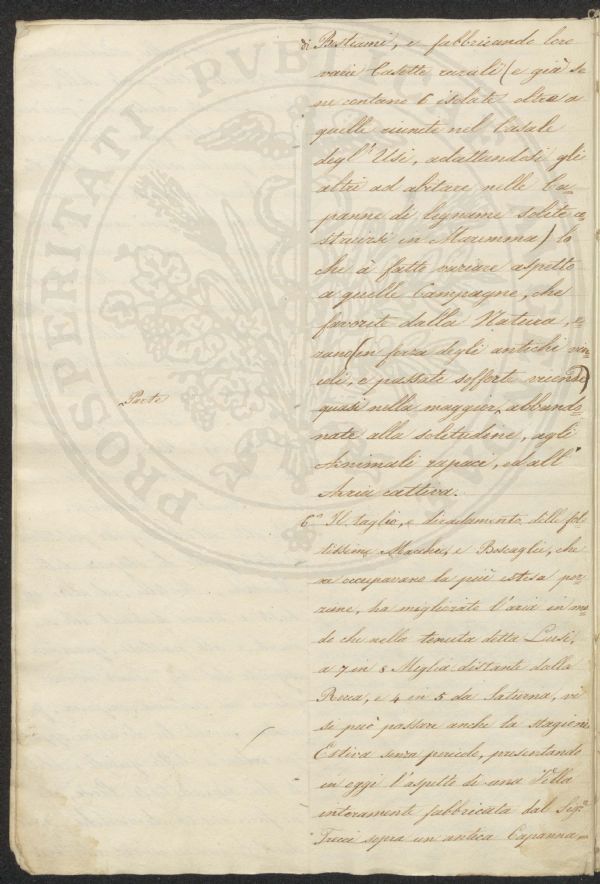 di Bestiami, e fabbricando loro
varie Casette rurali (e già se
ne contano 6 isolate oltre a
quelle riunite nel Casale
degl' Usi, adattandosi gli
altri ad abitare nelle Ca=
panne di legname solite co
struirsi in Maremma) lo
che à fatto variare aspetto
a quelle Campagne, che
favorite dalla Natura, e=
rano (in forza degli antichi vin=
coli, e passate sofferte vicende)
Parte
quasi nella maggior, abbando=
nate alla solitudine, agli
Animali rapaci, ed all'
Aria cattiva.
6° Il taglio, e diradamento delle fol
tissime Macchie, e Boscaglie, che
ne occupavano la più estesa por=
zione, ha migliorato l'aria in mo=
do che nella tenuta detta Lusi,
a 7 in 8 Miglia distante dalla
Rocca, e 4 in 5 da Saturna, vi
si può passare anche la stagione
Estiva senza pericolo, presentando
in oggi l'aspetto di una Villa
interamente fabbricata dal Sigr.
sopra un antica Capanna
PROSPERITATI PUBLICAE